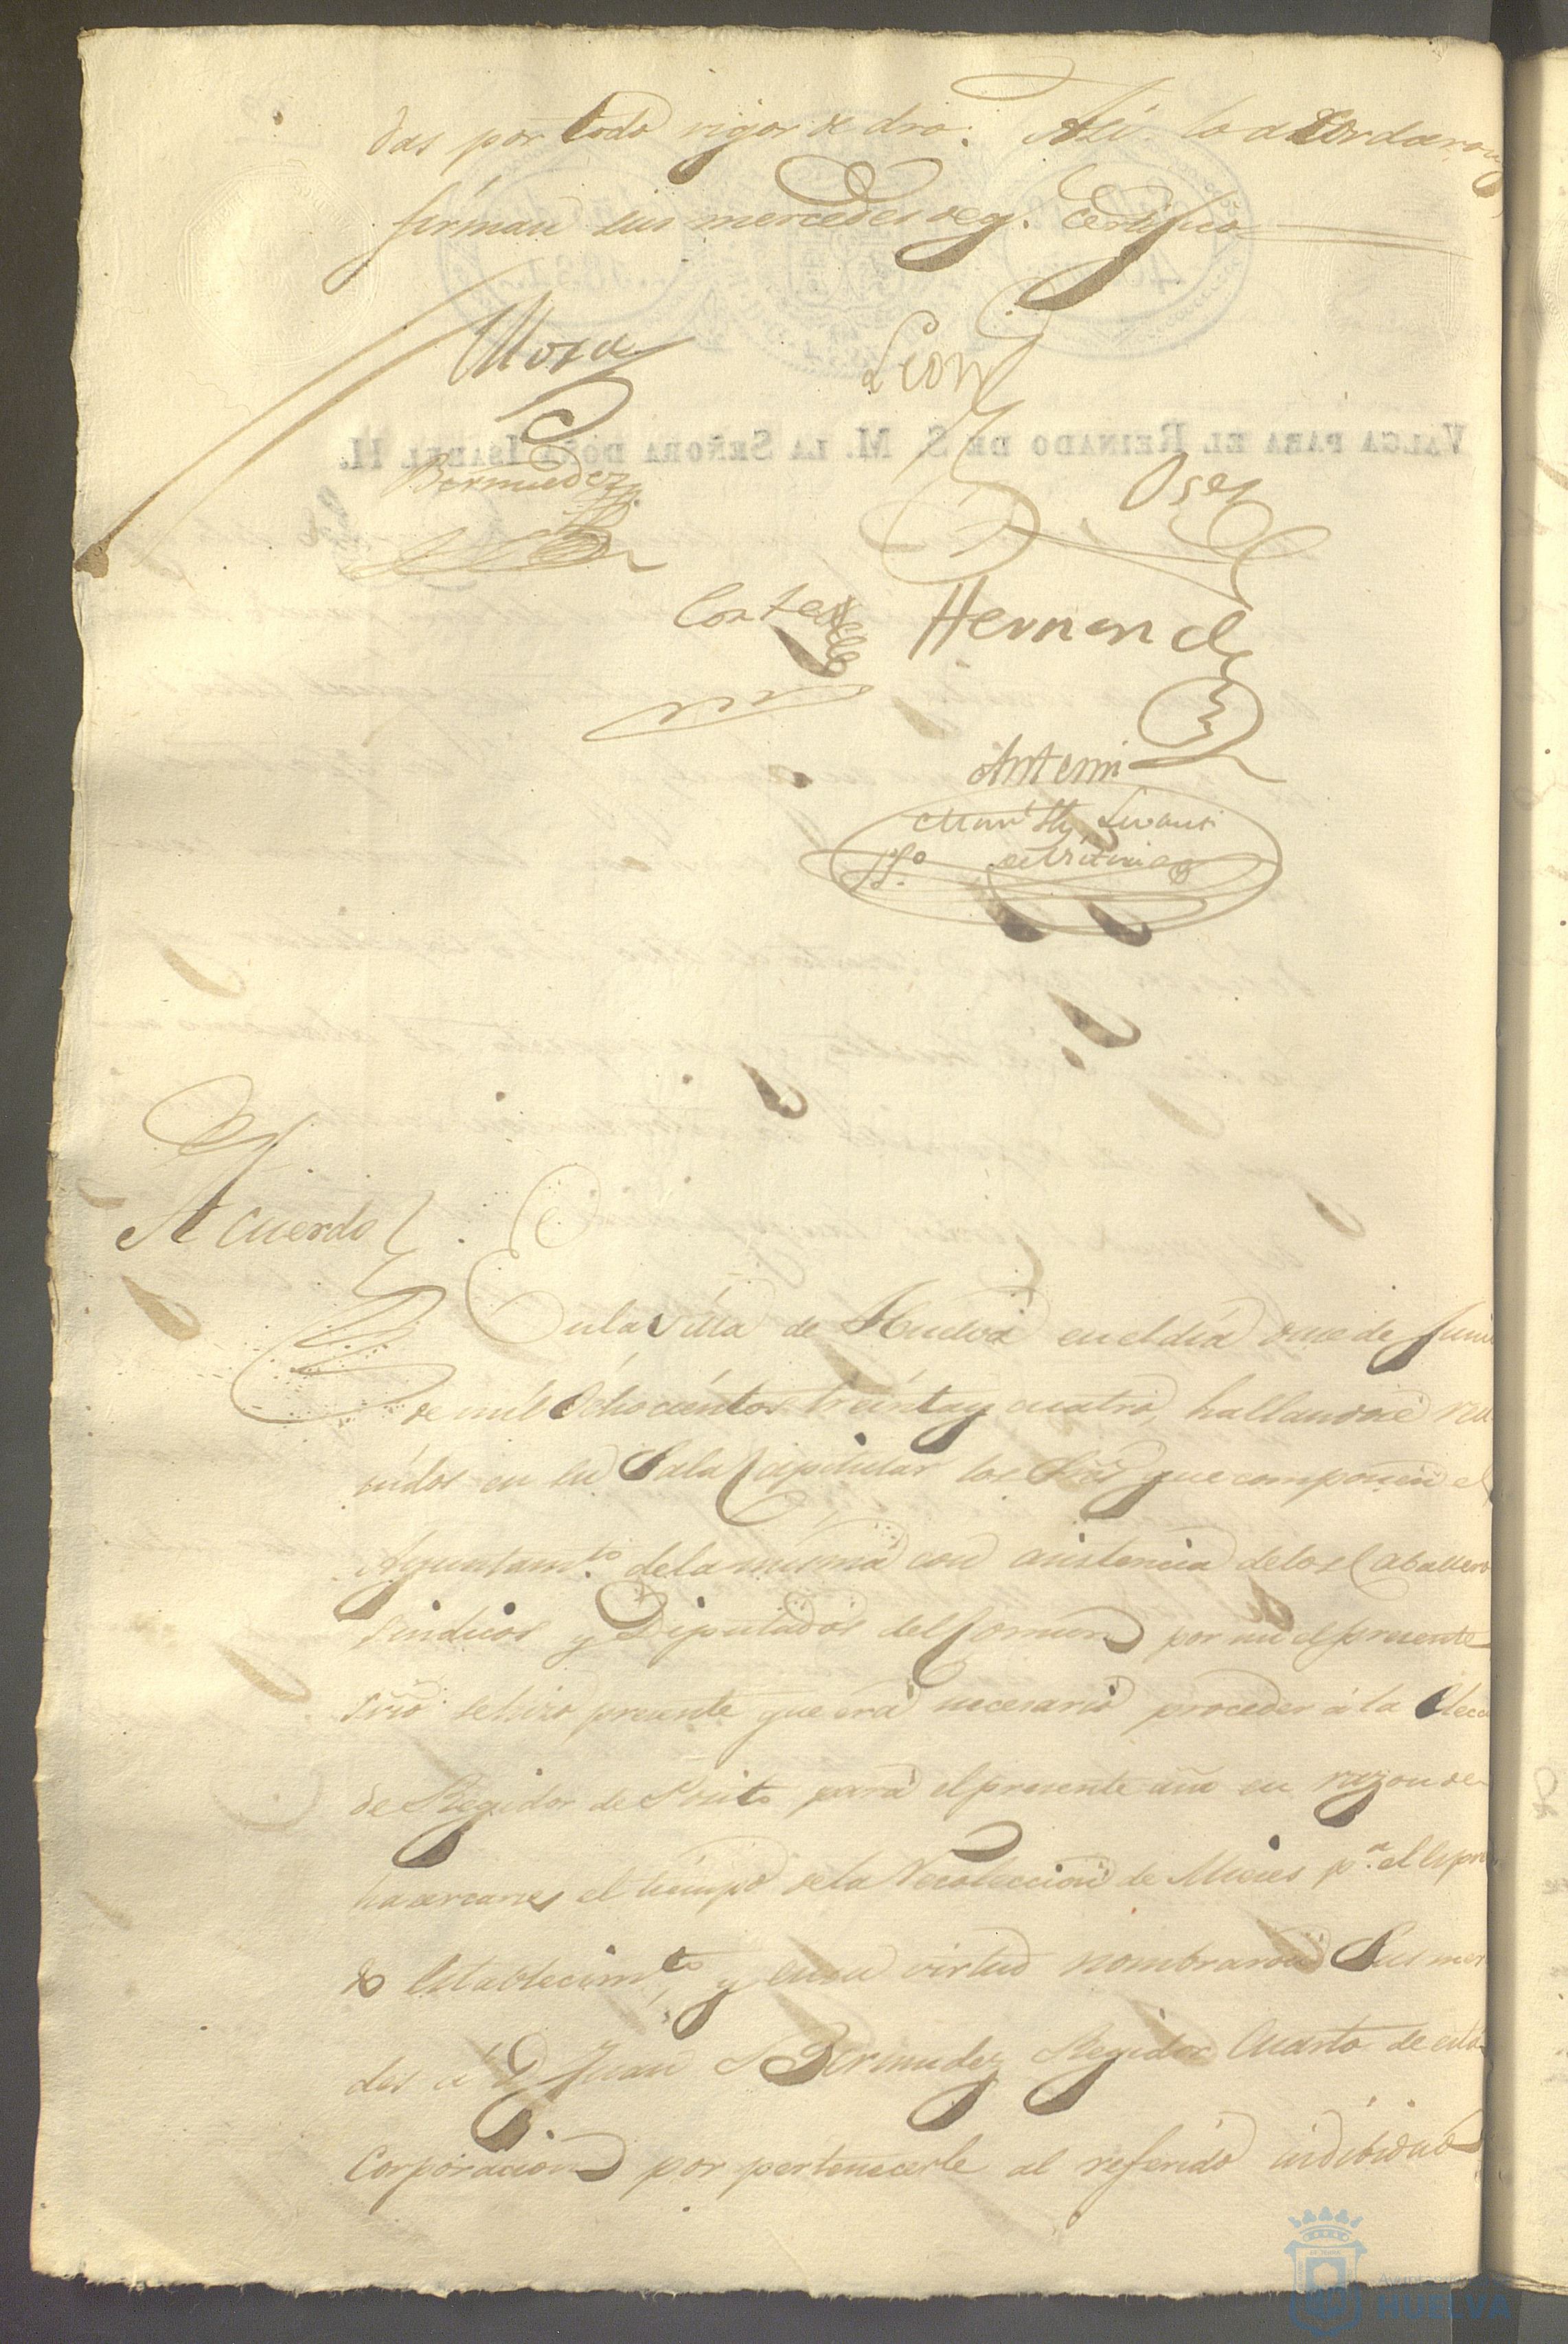 das por todo rigor de dro. Asi lo acordaron y
firman sus mercedes de q. Certifico
Mora
Leon
VALGA PARA EL REINADO DE S. M. LA SEÑORA DOÑA ISABEL II.
Bermudez
Cortes
Hernandz
Antemi
Acuerdo
En la Villa de Huelva en el dia once de Junio
de mil Ochocientos treinta y cuatro, hallandose reu
nidos en su Sala Capitular los Sres que componen el
Ayuntamto. de la misma con asistencia de los Caballeros
Sindicos y Diputados del Comun por mi el presente
Srio se hizo presente que era necesario proceder á la Elecc
de Regidor de Posito para el presente año en razon de
hacercarse el tiempo de la Recoleccion de Mieses pa. el espre
do Establecimto, y en su virtud nombraron Sus merce
des á D Juan Bermudez Regidor Cuarto de esta
Corporacion por pertenecerle al referido indibiduo
HUELVA